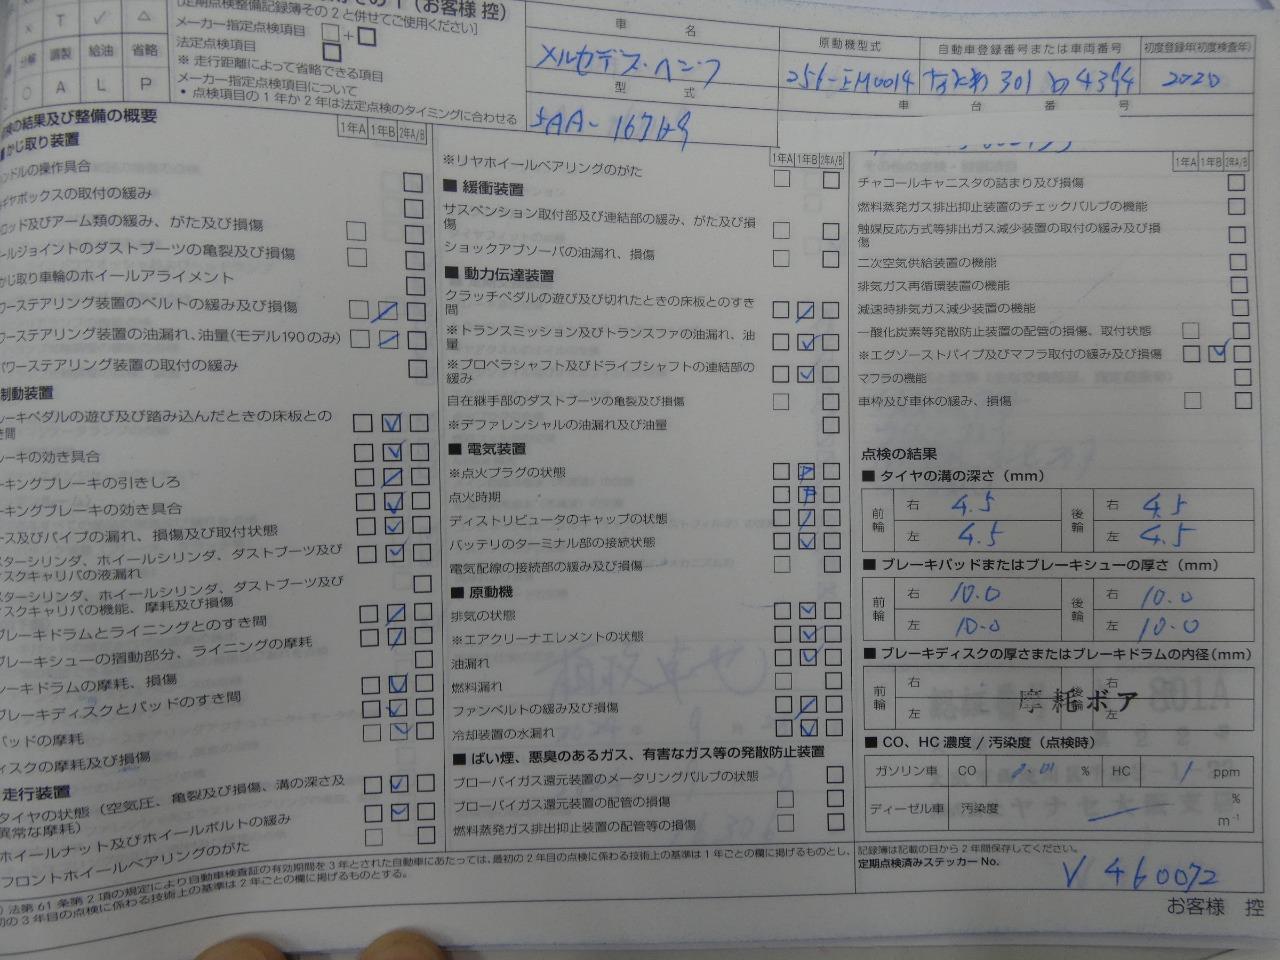 (お客様 控)
[定期点検整備記録簿その2と併せてご使用ください]
メーカー指定点検項目 □+□
法定点検項目
※ 走行距離によって省略できる項目
メーカー指定点検項目について
• 点検項目の1年か2年は法定点検のタイミングに合わせる
T ✓ △
分解 調製 給油 省略
○ A L P
車 名
メルセデス・ベンツ
型 式
5AA-167159
原動機型式
256-EM0014
自動車登録番号または車両番号
なにわ 301 4394
初度登録年(初度検査年)
2020
車 台 番 号
検の結果及び整備の概要
1年A 1年B 2年A/B
かじ取り装置
ンドルの操作具合
ギヤボックスの取付の緩み
ロッド及びアーム類の緩み、がた及び損傷
ールジョイントのダストブーツの亀裂及び損傷
かじ取り車輪のホイールアライメント
ワーステアリング装置のベルトの緩み及び損傷
ワーステアリング装置の油漏れ、油量(モデル190のみ)
パワーステアリング装置の取付の緩み
制動装置
レーキペダルの遊び及び踏み込んだときの床板との
き間
レーキの効き具合
ーキングブレーキの引きしろ
ーキングブレーキの効き具合
ース及びパイプの漏れ、損傷及び取付状態
スターシリンダ、ホイールシリンダ、ダストブーツ及び
ィスクキャリパの液漏れ
スターシリンダ、ホイールシリンダ、ダストブーツ及び
ィスクキャリパの機能、摩耗及び損傷
ブレーキドラムとライニングとのすき間
ブレーキシューの摺動部分、ライニングの摩耗
レーキドラムの摩耗、損傷
ブレーキディスクとパッドのすき間
パッドの摩耗
ィスクの摩耗及び損傷
走行装置
タイヤの状態(空気圧、亀裂及び損傷、溝の深さ及
異常な摩耗)
ホイールナット及びホイールボルトの緩み
フロントホイールベアリングのがた
1年A 1年B 2年A/B
※リヤホイールベアリングのがた
■ 緩衝装置
サスペンション取付部及び連結部の緩み、がた及び損
傷
ショックアブソーバの油漏れ、損傷
■ 動力伝達装置
クラッチペダルの遊び及び切れたときの床板とのすき
間
※トランスミッション及びトランスファの油漏れ、油
量
※プロペラシャフト及びドライブシャフトの連結部の
緩み
自在継手部のダストブーツの亀裂及び損傷
※デファレンシャルの油漏れ及び油量
■ 電気装置
※点火プラグの状態
点火時期
ディストリビュータのキャップの状態
バッテリのターミナル部の接続状態
電気配線の接続部の緩み及び損傷
■ 原動機
排気の状態
※エアクリーナエレメントの状態
油漏れ
燃料漏れ
ファンベルトの緩み及び損傷
冷却装置の水漏れ
■ ばい煙、悪臭のあるガス、有害なガス等の発散防止装置
ブローバイガス還元装置のメータリングバルブの状態
ブローバイガス還元装置の配管の損傷
燃料蒸発ガス排出抑止装置の配管等の損傷
1年A 1年B 2年A/B
チャコールキャニスタの詰まり及び損傷
燃料蒸発ガス排出抑止装置のチェックバルブの機能
触媒反応方式等排出ガス減少装置の取付の緩み及び損
傷
二次空気供給装置の機能
排気ガス再循環装置の機能
減速時排気ガス減少装置の機能
一酸化炭素等発散防止装置の配管の損傷、取付状態
※エグゾーストパイプ及びマフラ取付の緩み及び損傷
マフラの機能
車枠及び車体の緩み、損傷
点検の結果
■ タイヤの溝の深さ(mm)
前輪 右 4.5 後輪 右 4.5
左 4.5 左 4.5
■ ブレーキパッドまたはブレーキシューの厚さ(mm)
前輪 右 10.0 後輪 右 10.0
左 10.0 左 10.0
■ ブレーキディスクの厚さまたはブレーキドラムの内径(mm)
前輪 右 後輪 右
左 左
摩耗ボア
801A
■ CO、HC濃度/汚染度(点検時)
ガソリン車 CO 0.01 % HC 1 ppm
ディーゼル車 汚染度 % m⁻¹
) 法第61条第2項の規定により自動車検査証の有効期間を3年とされた自動車にあたっては、最初の2年目の点検に係わる技術上の基準は1年ごとの欄に掲げるものとし、
初の3年目の点検に係わる技術上の基準は2年ごとの欄に掲げるものとする。
記録簿は記載の日から2年間保存してください。
定期点検済みステッカー No.
V 460072
お客様 控